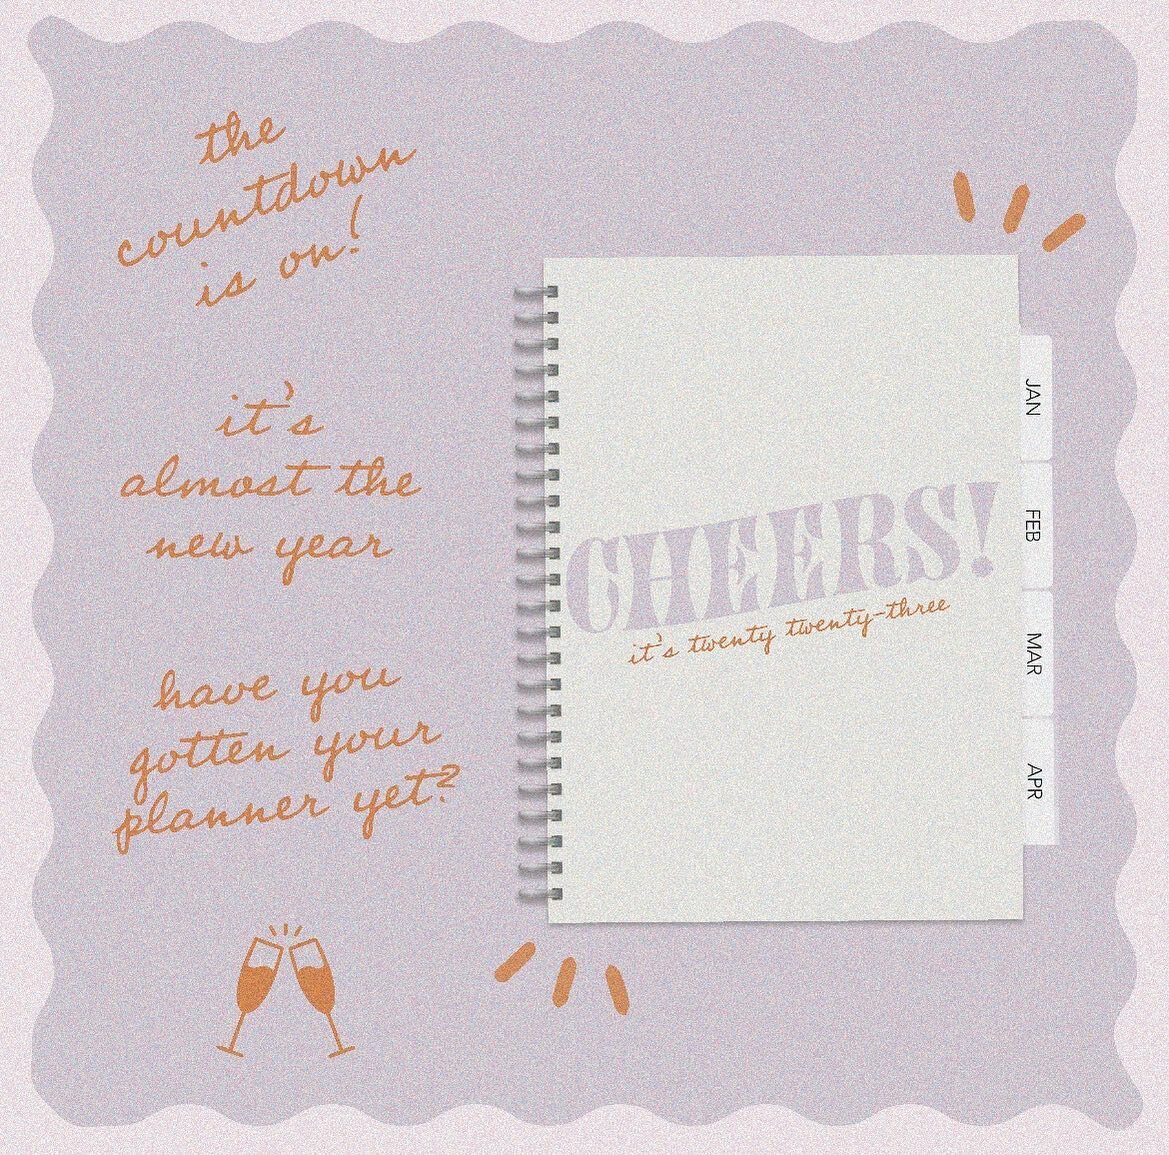 the
countdown
is on!
it's
almost the
new year
have you
gotten your
planner yet?
CHEERS!
it's twenty twenty-three
JAN
FEB
MAR
APR